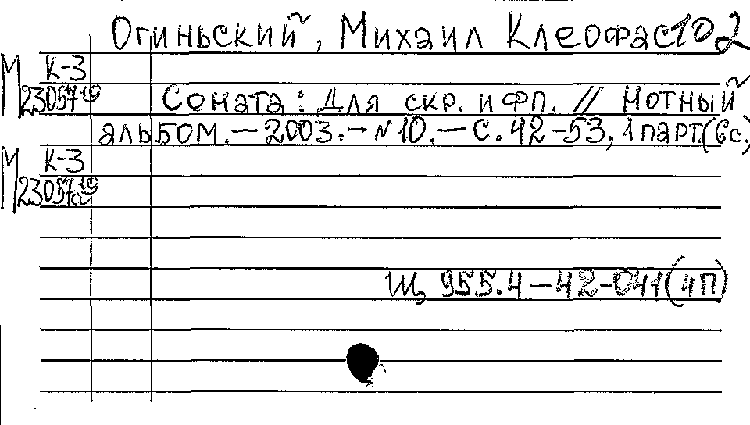 Огиньский, Михаил Клеофас 102
М К-3
23057
Соната: для скр. и фп. // Нотный
альбом. — 2003. — N 10. — С. 42-53, 1 парт. (6с)
М К-3
23057
Щ 955.4-42-041 (4П)